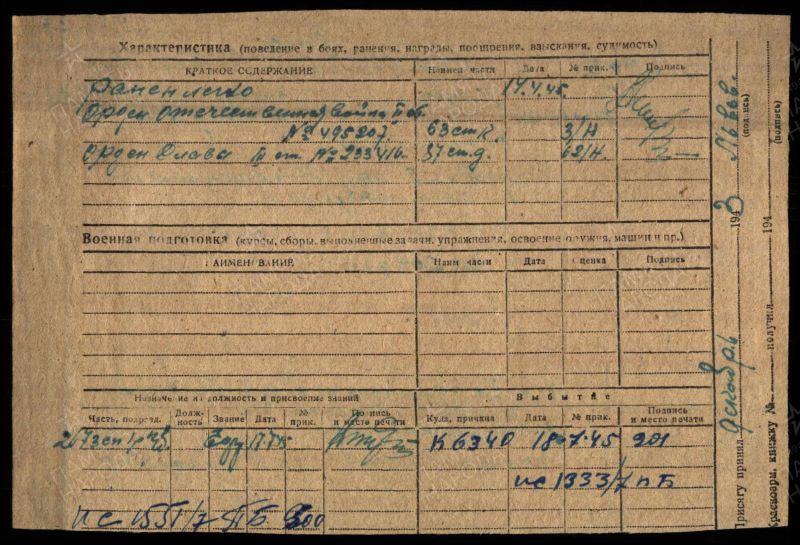 Характеристика (поведение в боях, ранения, награды, поощрения, взыскания, судимость)
КРАТКОЕ СОДЕРЖАНИЕ Наимен части Дата № прик. Подпись
Ранен легко 14.4.45.
Орден Отечественная война II ст.
№ 495207 63 СтК. 3/Н
Орден Слава III ст. № 233416. 37 ст.д. 62/Н.
Военная подготовка (курсы, сборы, выполненные задачи, упражнения, освоение оружия, машин и пр.)
НАИМЕНОВАНИЕ Наим части Дата Оценка Подпись
Назначение на должность и присвоение званий Выбытие
Часть, подразд. Долж-ность Звание Дата № прик. Подпись и место печати Куда, причина Дата № прик. Подпись и место печати
К 6340 18-7-45 201
ис 1333/7 п Б
ис 1551/7 ПБ 500
Присягу принял декабрь 1943 Львов. (подпись)
Красноарм. книжку № получил 194 (подпись)